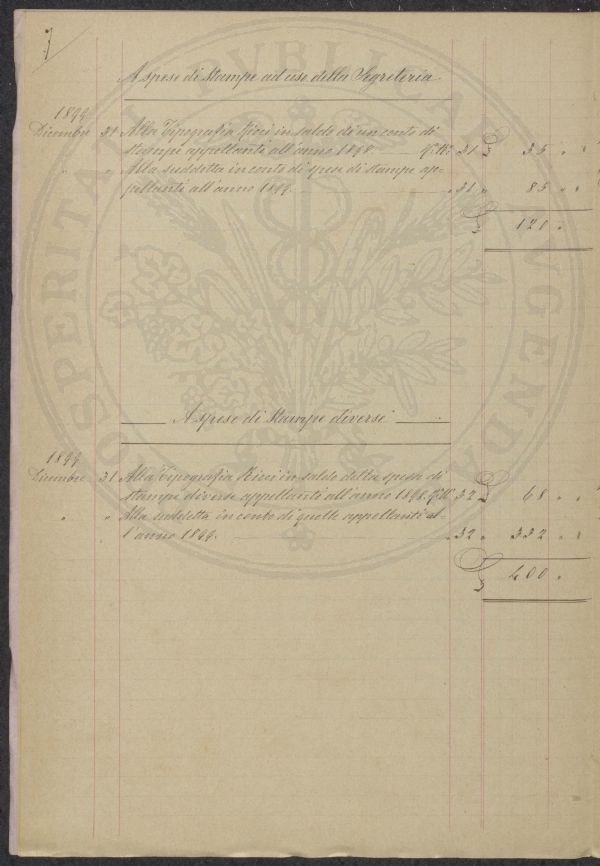 7
A spese di Stampe ad uso della Segreteria
1899
Dicembre 31 Alla Tipografia Ricci in saldo di un conto di
stampe appellanti all'anno 1898 31 £ 35 " "
" " Alla suddetta in conto di spese di stampe ap-
pellanti all'anno 1899. " 31 " 85 " "
£ 120 "
A spese di Stampe diverse
1899
Dicembre 31 Alla Tipografia Ricci in saldo della spesa di
stampe diverse appellanti all'anno 1898. 32 £ 68 " "
" " Alla suddetta in conto di quelle appellanti al-
l'anno 1899. " 32 " 332 " "
£ 400 "
PROSPERITATI PUBLICAE AUGENDAE